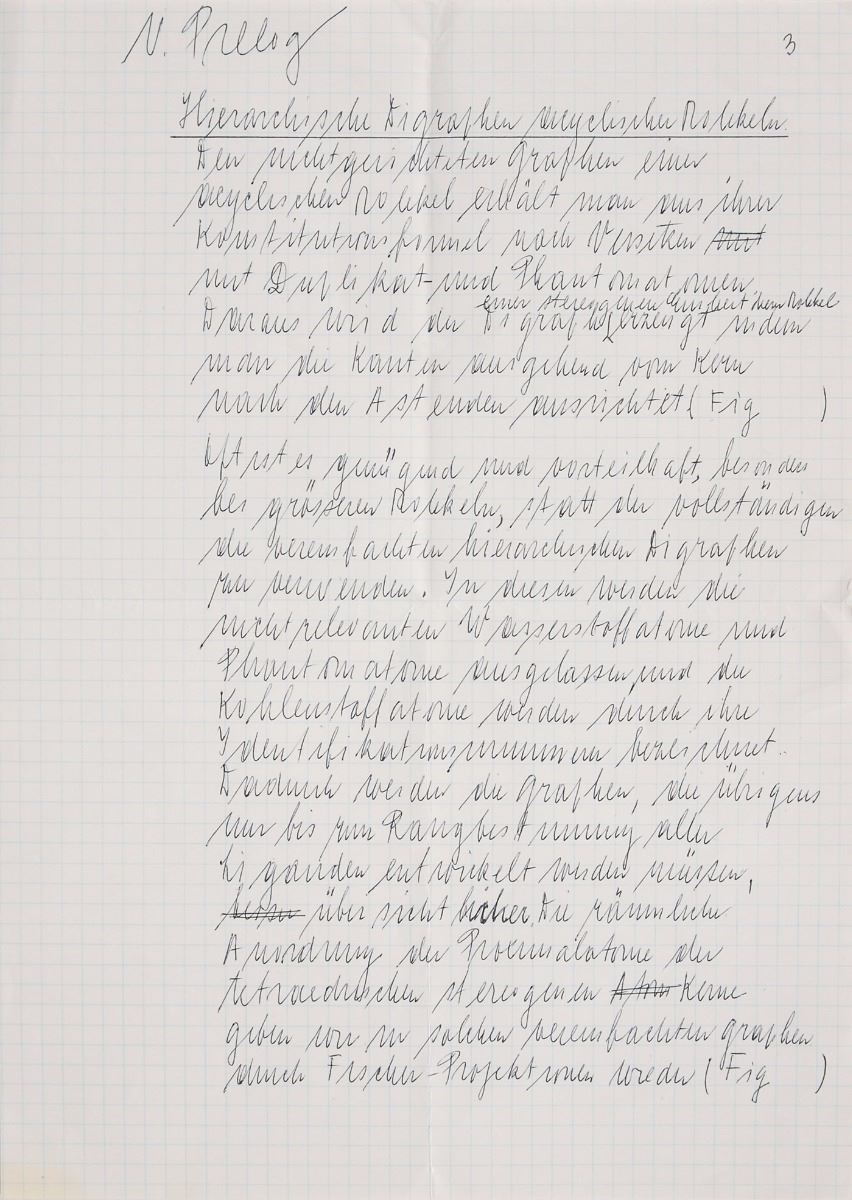 V. Prelog
3
Hierarchische Digraphen acyclischer Molekeln.
Den nichtgerichteten Graphen einer
acyclischen Molekel erhält man aus ihrer
Konstitutionsformel nach Versetzen mit
mit Duplikat- und Phantomatomen
einer stereogenen Einheit ihrer Molekel
Daraus wird der Digraph erzeugt indem
man die Kanten ausgehend vom Kern
nach den Astenden ausrichtet (Fig )
Oft ist es genügend und vorteilhaft, besonders
bei grösseren Molekeln, statt der vollständigen
die vereinfachten hierarchischen Digraphen
zu verwenden. In diesen werden die
nicht relevanten Wasserstoffatome und
Phantomatome ausgelassen und die
Kohlenstoffatome werden durch ihre
Identifikationsnummern bezeichnet.
Dadurch werden die Graphen, die übrigens
nur bis zum Rangbestimmung aller
Liganden entwickelt werden müssen,
besser übersichtlicher. Die räumliche
Anordnung der Proximalatome der
tetraedrischen stereogenen Atom Kerne
geben wir in solchen vereinfachten Graphen
durch Fischer-Projektionen wieder (Fig )